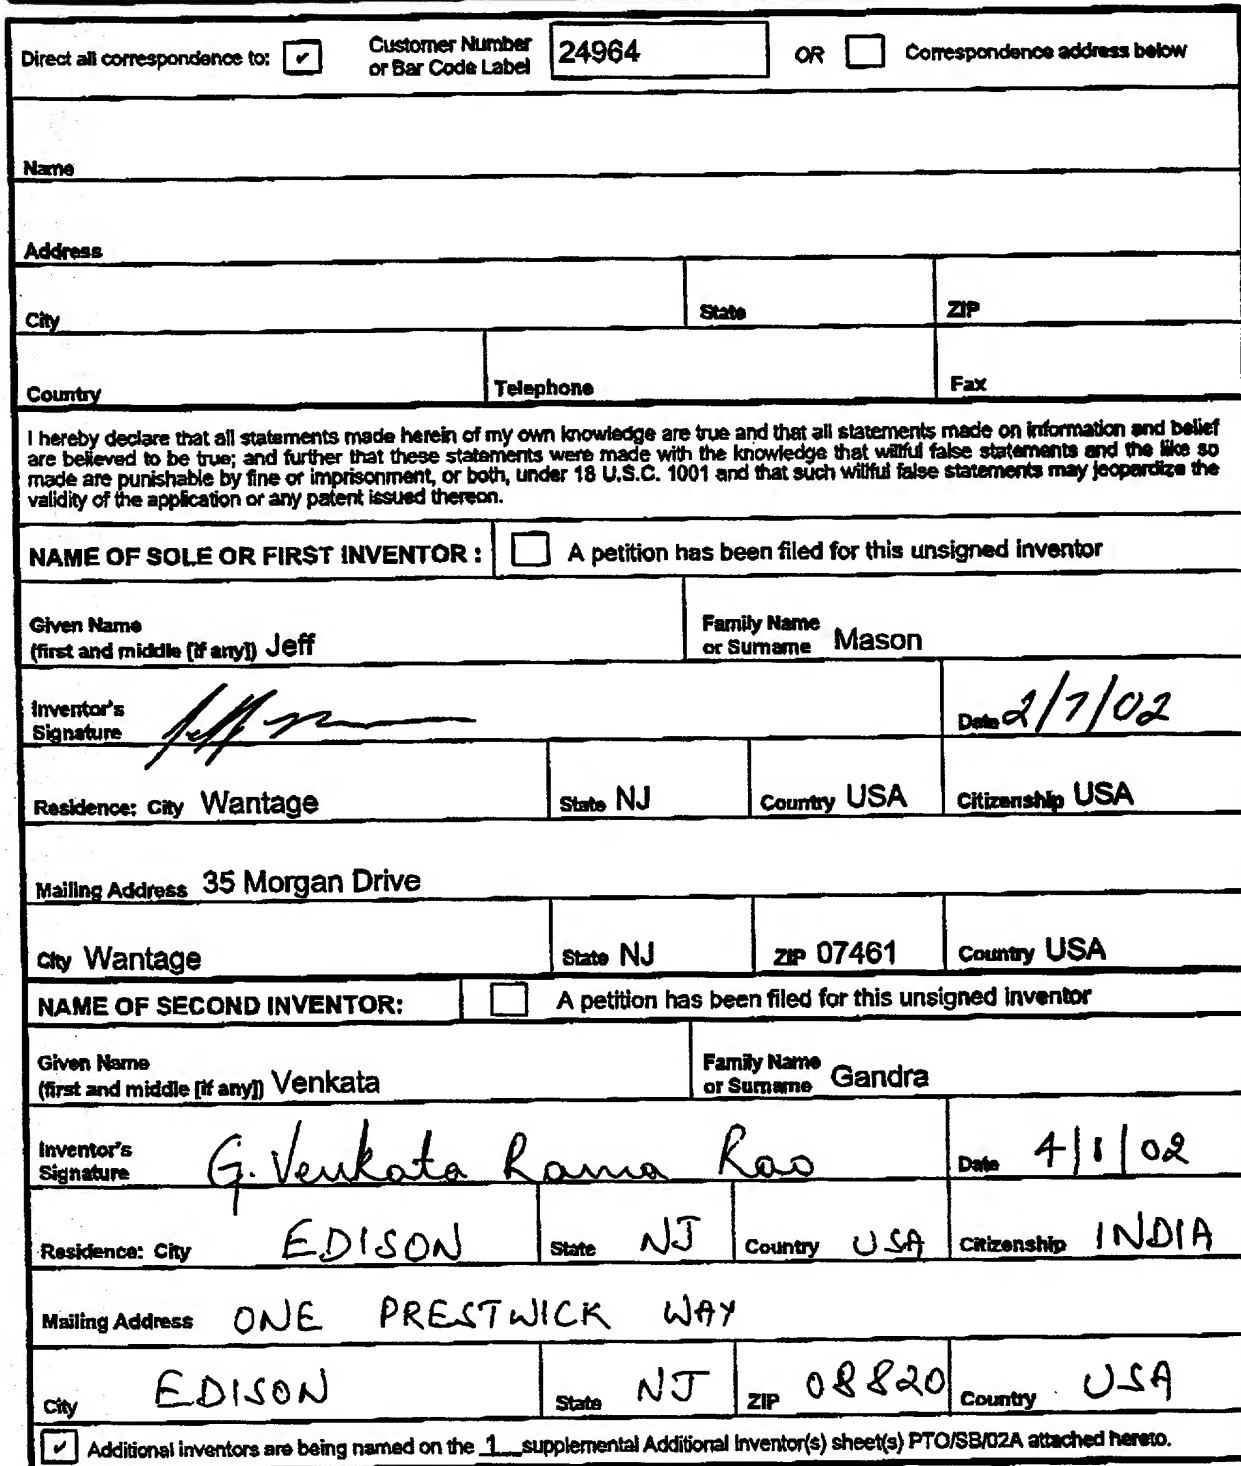 Direct all correspondence to: ✓ Customer Number or Bar Code Label 24964 OR Correspondence address below
Name
Address
City State ZIP
Country Telephone Fax
I hereby declare that all statements made herein of my own knowledge are true and that all statements made on information and belief
are believed to be true; and further that these statements were made with the knowledge that willful false statements and the like so
made are punishable by fine or imprisonment, or both, under 18 U.S.C. 1001 and that such willful false statements may jeopardize the
validity of the application or any patent issued thereon.
NAME OF SOLE OR FIRST INVENTOR : A petition has been filed for this unsigned inventor
Given Name (first and middle [if any]) Jeff Family Name or Surname Mason
Inventor's Signature Jeff Date 2/7/02
Residence: City Wantage State NJ Country USA Citizenship USA
Mailing Address 35 Morgan Drive
City Wantage State NJ ZIP 07461 Country USA
NAME OF SECOND INVENTOR: A petition has been filed for this unsigned inventor
Given Name (first and middle [if any]) Venkata Family Name or Surname Gandra
Inventor's Signature G. Venkata Rama Rao Date 4/1/02
Residence: City EDISON State NJ Country USA Citizenship INDIA
Mailing Address ONE PRESTWICK WAY
City EDISON State NJ ZIP 08820 Country USA
✓ Additional inventors are being named on the 1 supplemental Additional Inventor(s) sheet(s) PTO/SB/02A attached hereto.